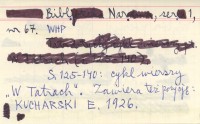 Bibl. Nar., ser. 1,
nr 67. WHP
S. 125-140: cykl wierszy
„W Tatrach". Zawiera też przyp.:
KUCHARSKI E. 1926.